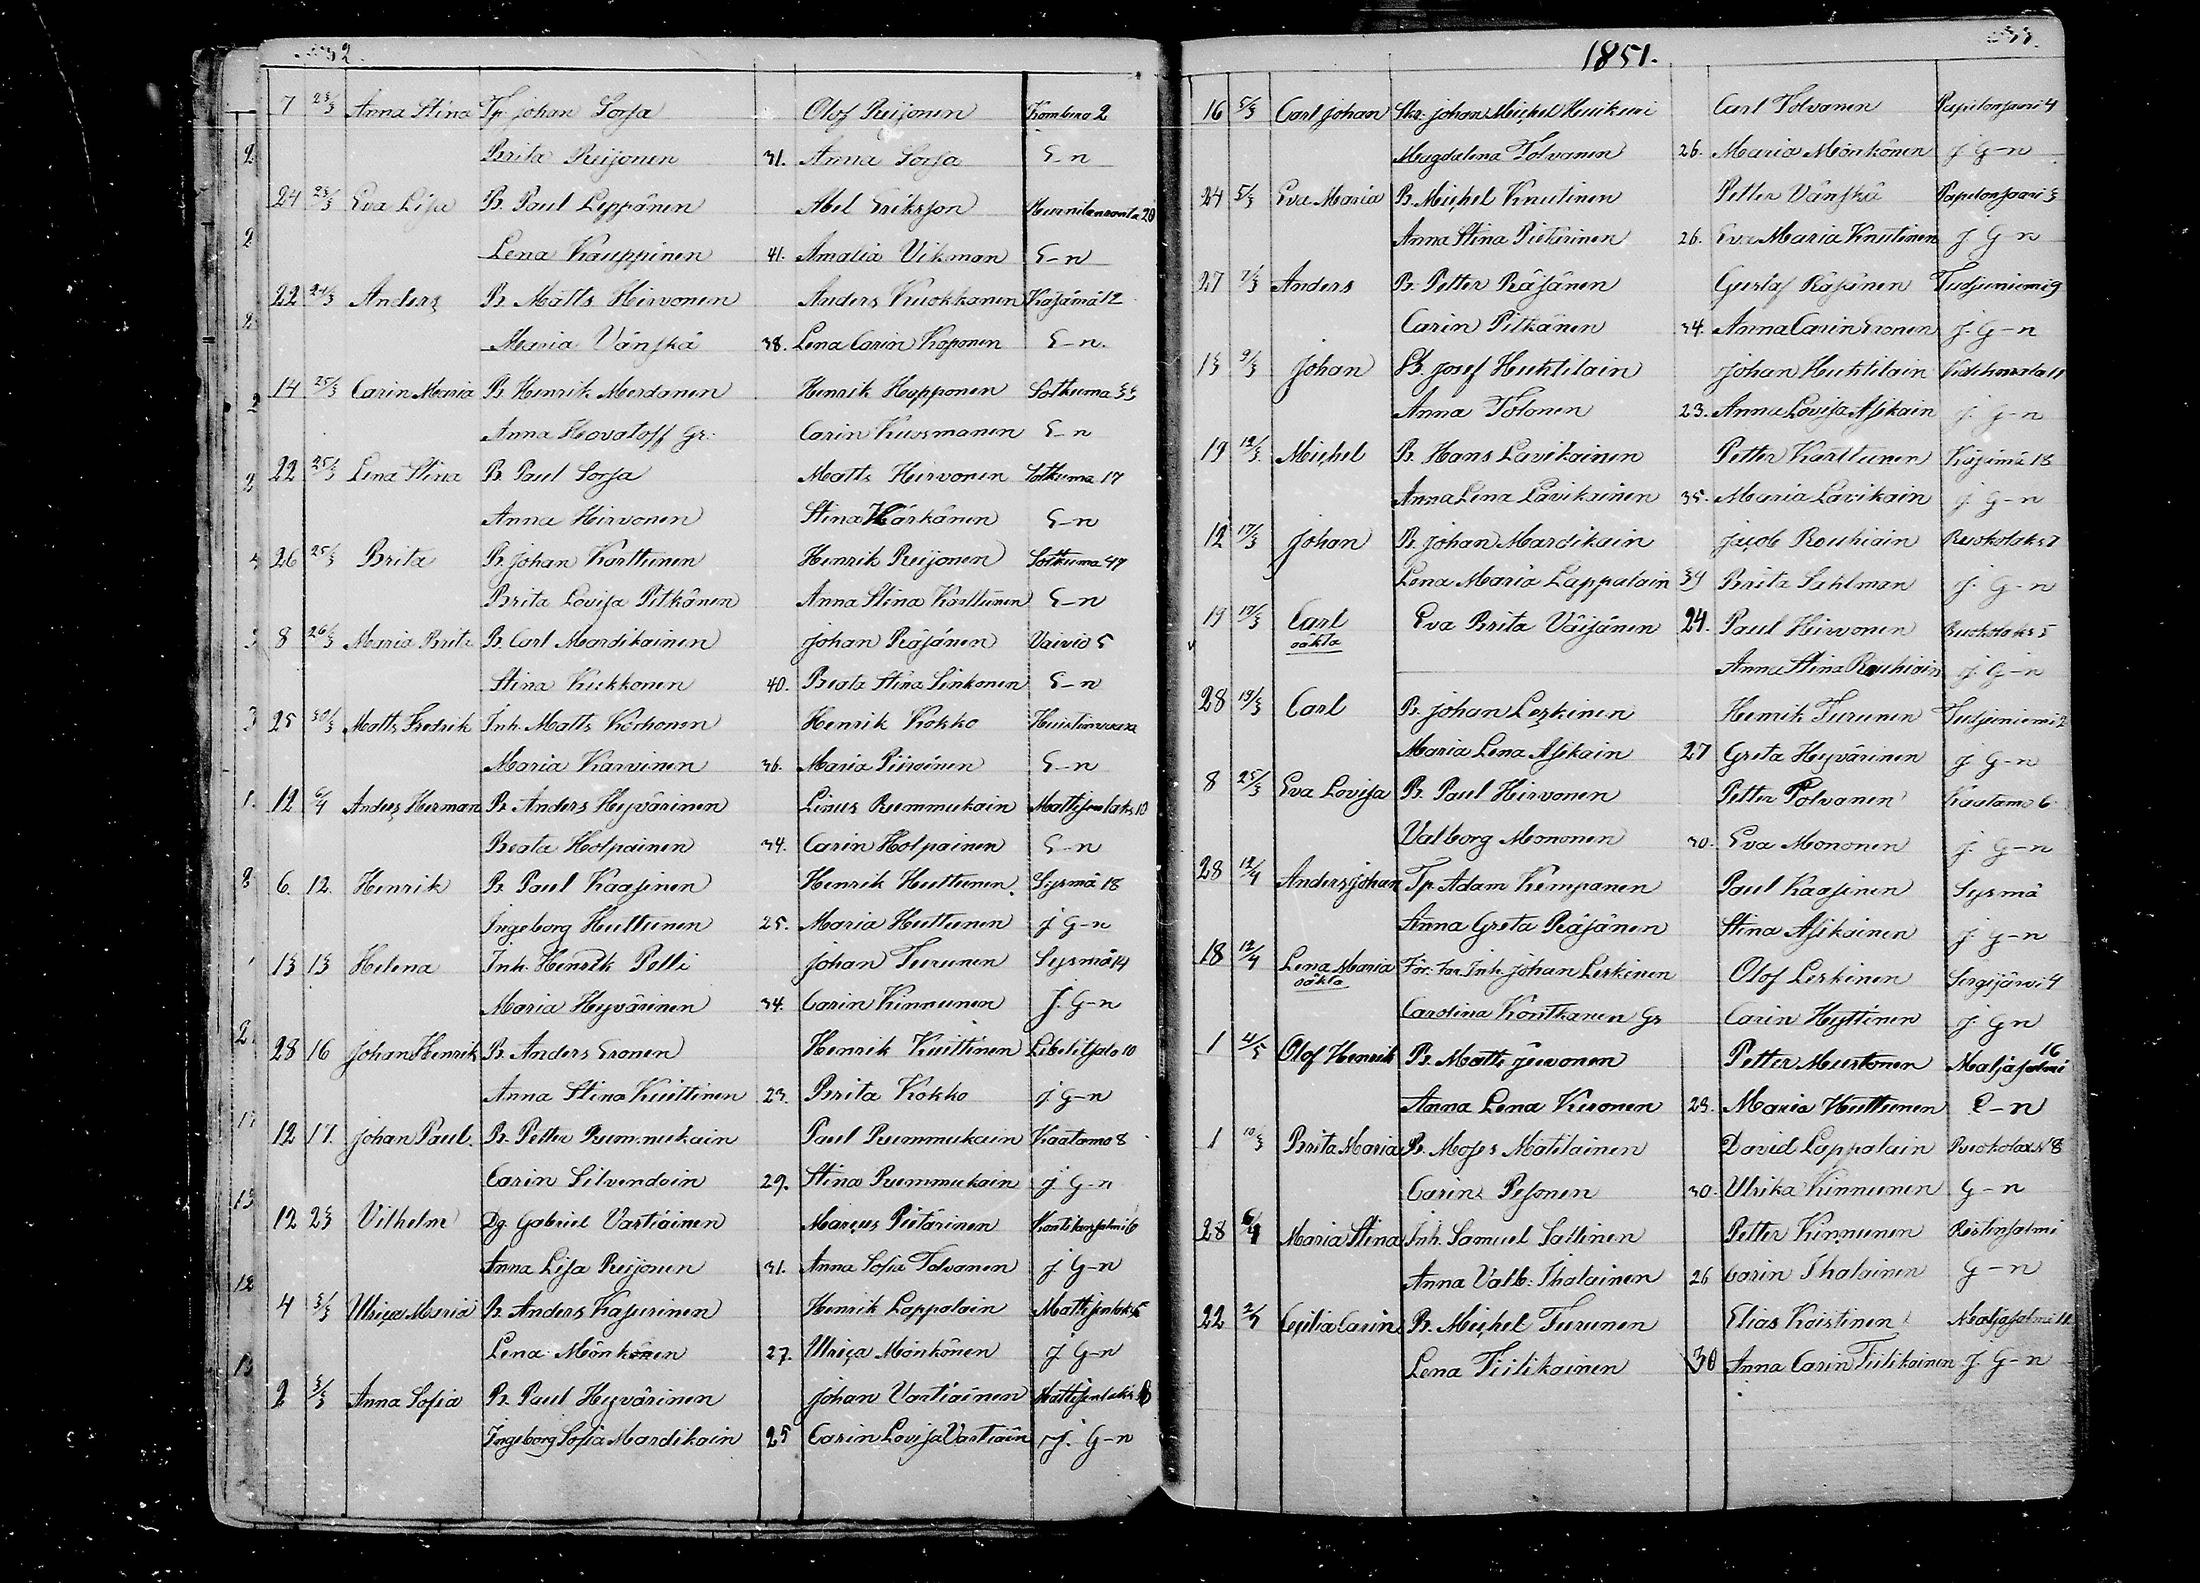 32.
7 23/3 Anna Stina Tp. Johan Sorsa Olof Reijonen Kombero 2
Brita Reijonen 31. Anna Sorsa E-n
24 23/3 Eva Lisa B. Paul Leppänen Abel Eriksson 20
Lena Kauppinen 41. Amalia Vikman E-n
22 24/3 Anders B. Matts Hirvonen Anders Kuokkanen Käsämä 12
Maria Vänskä 38. Lena Carin Koponen E-n.
14 25/3 Carin Maria B. Henrik Mordanen Henrik Hopponen Sotkuma 33
Anna Hovatoff Gr. Carin Kuosmanen E-n
22 25/3 Lena Stina B. Paul Sorsa Matts Hirvonen Sotkuma 17
Anna Hirvonen Stina Härkänen E-n
26 25/3 Brita B. Johan Karttunen Henrik Reijonen Sotkuma 47
Brita Lovisa Pitkänen Anna Stina Karttunen E-n
8 26/3 Maria Brita B. Carl Mardikainen Johan Räsänen Vaivio 5
Stina Kukkonen 40. Beata Stina Sinkonen E-n
25 30/3 Matts Fredrik Inh. Matts Korhonen Henrik Kokko
Maria Karvinen 36. Maria Piiroinen E-n
12 6/4 Anders Herman B. Anders Hyvärinen Linus Rummukain Mattisenlaks 10
Beata Holpainen 34. Carin Holpainen E-n
6. 12. Henrik B. Paul Kaasinen Henrik Huttunen. Sysmä 18
Ingeborg Huttunen 25. Maria Huttunen J G-n
13 13 Helena Inh. Henrik Pelli Johan Turunen Sysmä 14
Maria Hyvärinen 34. Carin Kinnunen J. G-n
28 16 Johan Henrik B. Anders Eronen Henrik Kuittinen Libelitsdo 10
Anna Stina Kuittinen 23. Brita Kokko J G-n
12 17. Johan Paul. B. Petter Rummukain Paul Rummukain Kaatamo 8
Carin Silvendoin 29. Stina Rummukain J. G-n
12 23 Vilhelm Dg. Gabriel Vartiainen Marcus Pietarinen Kontkansalmi 6
Anna Lisa Reijonen 31. Anna Sofia Tolvanen J G-n
4 3/3 Ulrica Maria B. Anders Kasurinen Henrik Lappalain Mattisenlaks 5
Lena Mönkönen 27. Ulrica Mönkönen J. G-n
2 3/3 Anna Sofia B. Paul Hyvärinen Johan Vartiainen Mattisenlaks
Ingeborg Sofia Mardikain 25 Carin Lovisa Vartiain J. G-n
1851.
33.
16 5/3 Carl Johan Skr. Johan Michel Muikuri Carl Tolvanen Papelonsaari 4
Magdalena Tolvanen 26. Maria Mönkönen J G-n
24 5/3 Eva Maria B. Michel Knutinen Petter Vänskä Papelonsaari 3
Anna Stina Pietarinen 26. Eva Maria Knutinen J G-n
27 7/3 Anders B. Petter Räsänen Gustaf Räsänen Tutjuniemi 9
Carin Pitkänen 34. Anna Carin Eronen J. G-n
13 9/3 Johan B. Josef Huhtilain Johan Huhtilain
Anna Tolonen 23. Anna Lovisa Asikain J. G-n
19 12/3 Michel B. Hans Lavikainen Petter Karttunen Käsämä 18
Anna Lena Lavikainen 35. Maria Lavikain J. G-n
12 17/3 Johan B. Johan Mardikain Jacob Rouhiain Ruokolaks 7
Lena Maria Lappalain 34 Brita Sahlman J. G-n
19 17/3 Carl Eva Brita Väisänen 24. Paul Hirvonen Ruokolaks 5
oäkta
Anna Stina Rouhiain J. G-n
28 19/3 Carl B. Johan Leskinen Henrik Turunen Tutjuniemi 2
Maria Lena Asikain 27 Greta Hyvärinen J G-n
8 25/3 Eva Lovisa B. Paul Hirvonen Petter Tolvanen Kaatamo 6
Valborg Mononen 30. Eva Mononen J. G-n
28 12/4 Anders Johan Tp. Adam Kumpanen Paul Kaasinen Sysmä
Anna Greta Räsänen Stina Asikainen J. G-n
18 12/4 Lena Maria För. Far. Inh. Johan Leskinen Olof Leskinen Sorgijärvi 4
oäkta
Carolina Kontkanen Gr Carin Hyttinen J. G n
1 4/5 Olof Henrik B. Matts Juvonen Petter Mustonen Maljasalmi 16
Anna Lena Kuronen 23. Maria Huttunen E-n
1 10/3 Brita Maria B. Moses Matilainen David Lappalain Ruokolax N 8
Carin Pesonen 30. Ulrika Kinnunen G-n
28 6/4 Maria Stina Inh. Samuel Sallinen Petter Kinnunen Ristinsalmi
Anna Valb. Ihalainen 26 Carin Ihalainen G-n
22 2/4 Cecilia Carin B. Michel Turunen Elias Koistinen Maljasalmi 11
Lena Tiilikainen 30 Anna Carin Tiilikainen J. G-n